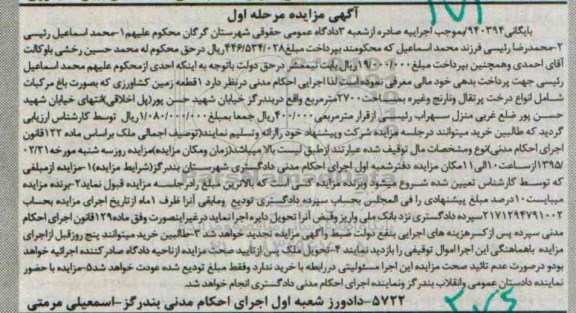 آگهی مزایده مرحله اول
بایگانی ۹۴۰۳۹۴/بموجب اجراییه صادره ازشعبه ۳دادگاه عمومی حقوقی شهرستان گرگان محکوم علیهم ۱-محمد اسماعیل رئیسی
۲-محمدرضا رئیسی فرزند محمد اسماعیل که محکومند بپرداخت مبلغ ۴۴۶/۵۳۴/۰۲۸ریال درحق محکوم له محمد حسین رخشی باوکالت
آقای احمدی وهمچنین بپرداخت مبلغ ۱۹/۰۰۰/۰۰۰ریال بابت نیمعشر درحق دولت باتوجه به اینکه احدی ازمحکوم علیهم محمد اسماعیل
رئیسی جهت پرداخت بدهی خود مالی معرفی نموده است لذا اجرایی احکام مدنی درنظر دارد ۱قطعه زمین کشاورزی که بصورت باغ مرکبات
شامل انواع درخت پرتقال ونارنج وغیره بمساحت ۲۷۰۰مترمربع واقع دربندرگز خیابان شهید حسن پور(پل اخلاقی)انتهای خیابان شهید
حسن پور ضلع غربی منزل سهراب رئیسی ازقرار مترمربعی ۴۰۰/۰۰۰ریال جمعا بمبلغ ۱/۰۸۰/۰۰۰/۰۰۰ریال توسط کارشناس ارزیابی
گردید که طالبین خرید میتوانند درجلسه مزایده شرکت وپیشنهاد خود راارائه وتسلیم نمایند(توصیف اجمالی ملک براساس ماده ۱۲۲قانون
اجرای احکام مدنی)نوع ومشخصات مال توقیف شده عبارتند ازطبق لیست بالا میباشد(زمان ومکان مزایده)مزایده روزسه شنبه مورخه ۰۲/۲۱
/۱۳۹۵ازساعت ۱۰الی ۱۱مکان مزایده دفترشعبه اول اجرای احکام مدنی دادگستری شهرستان بندرگز(شرایط مزایده)۱-مزایده ازمبلغی
که توسط کارشناس تعیین شده شروع میشود وبرنده مزایده کسی است که بالاترین مبلغ رادرجلسه مزایده قبول نماید۲-برنده مزایده
میبایست۱۰درصد مبلغ پیشنهادی را فی المجلس بحساب سپرده دادگستری تودیع ومابقی آنرا ظرف ۱ماه ازتاریخ اجرای مزایده بحساب
۲۱۷۱۲۹۴۷۹۱۰۰۲سپرده دادگستری نزد بانک ملی واریز وقبض آنرا تحویل دایره اجرا نماید درغیراینصورت وفق ماده ۱۲۹قانون اجرای احکام
مدنی سپرده پس ازکسرهزینه های اجرایی بنفع دولت ضبط وآگهی مزایده تجدید خواهد شد ۳-طالبین خرید میتوانند پنج روزقبل ازاجرای
مزایده باهماهنگی این اجرا اموال توقیفی را بازدید نمایند ۴-تحویل ملک پس ازتایید صحت مزایده ازناحیه دادگاه صادرکننده اجرائیه خواهد
بود و درصورت عدم تائید صحت مزایده این اجرا مسئولیتی دررابطه با خرید ندارد وفقط مبلغ تودیع شده عودت خواهد شد۵-مزایده با حضور
نماینده دادستان عمومی وانقلاب بندرگز ونماینده اجرای احکام مدنی دادگستری انجام خواهد شد.
۵۷۲۲-دادورز شعبه اول اجرای احکام مدنی بندرگز-اسمعیلی مرمتی